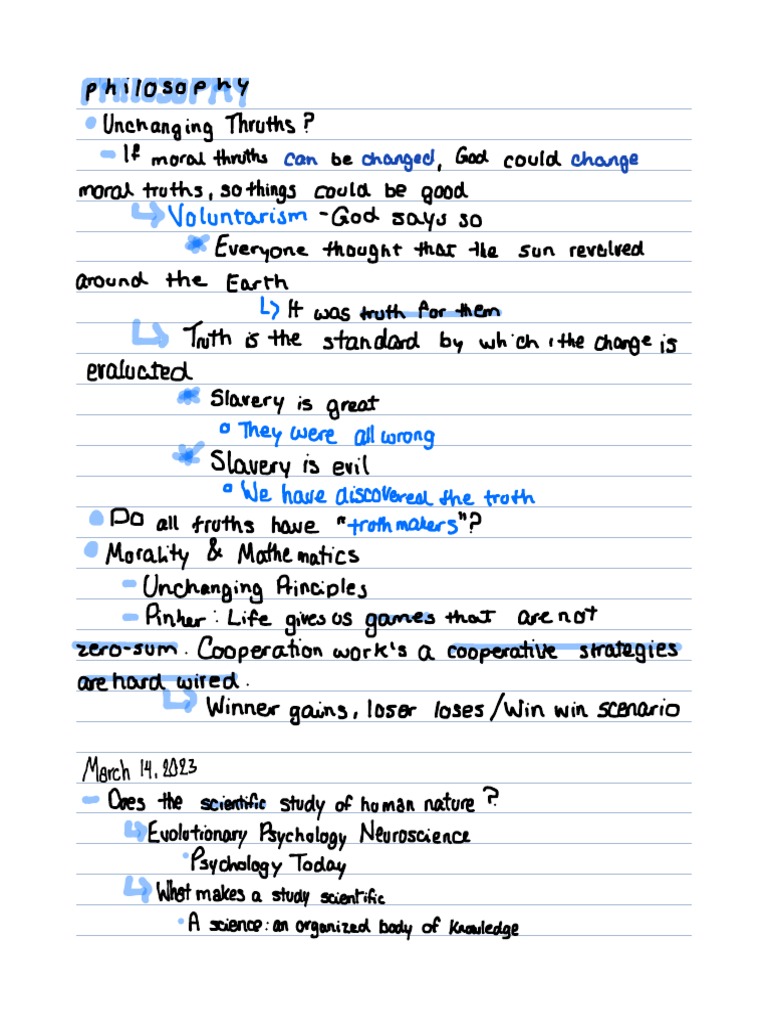 philosophy
• Unchanging Thruths?
- If moral thruths can be changed, God could change
moral truths, so things could be good
↳ Voluntarism - God says so
* Everyone thought that the sun revolved
around the Earth
↳ It was truth for them
↳ Truth is the standard by which the change is
evaluated
* Slavery is great
° They were all wrong
* Slavery is evil
° We have discovered the truth
• Do all truths have "truthmakers"?
• Morality & Mathematics
- Unchanging Principles
- Pinker: Life gives us games that are not
zero-sum. Cooperation work's a cooperative strategies
are hard wired.
↳ Winner gains, loser loses/Win win scenario
March 14, 2023
- Does the scientific study of human nature?
↳ Evolutionary Psychology Neuroscience
• Psychology Today
↳ What makes a study scientific
• A science: an organized body of knowledge